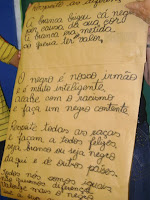 A branca brigou cá neg
por causa da sua cor
A branca era metida
só queria ter valor.
O negro é nosso irmão
e é muito inteligente,
acabe com o racismo
e faça um negro contente.
Respeite todas as raças
e façam a todos felizes
seja branco ou seja negro
daqui e de outros países.
todos nós somos iguais
não queremos diferença
o negro